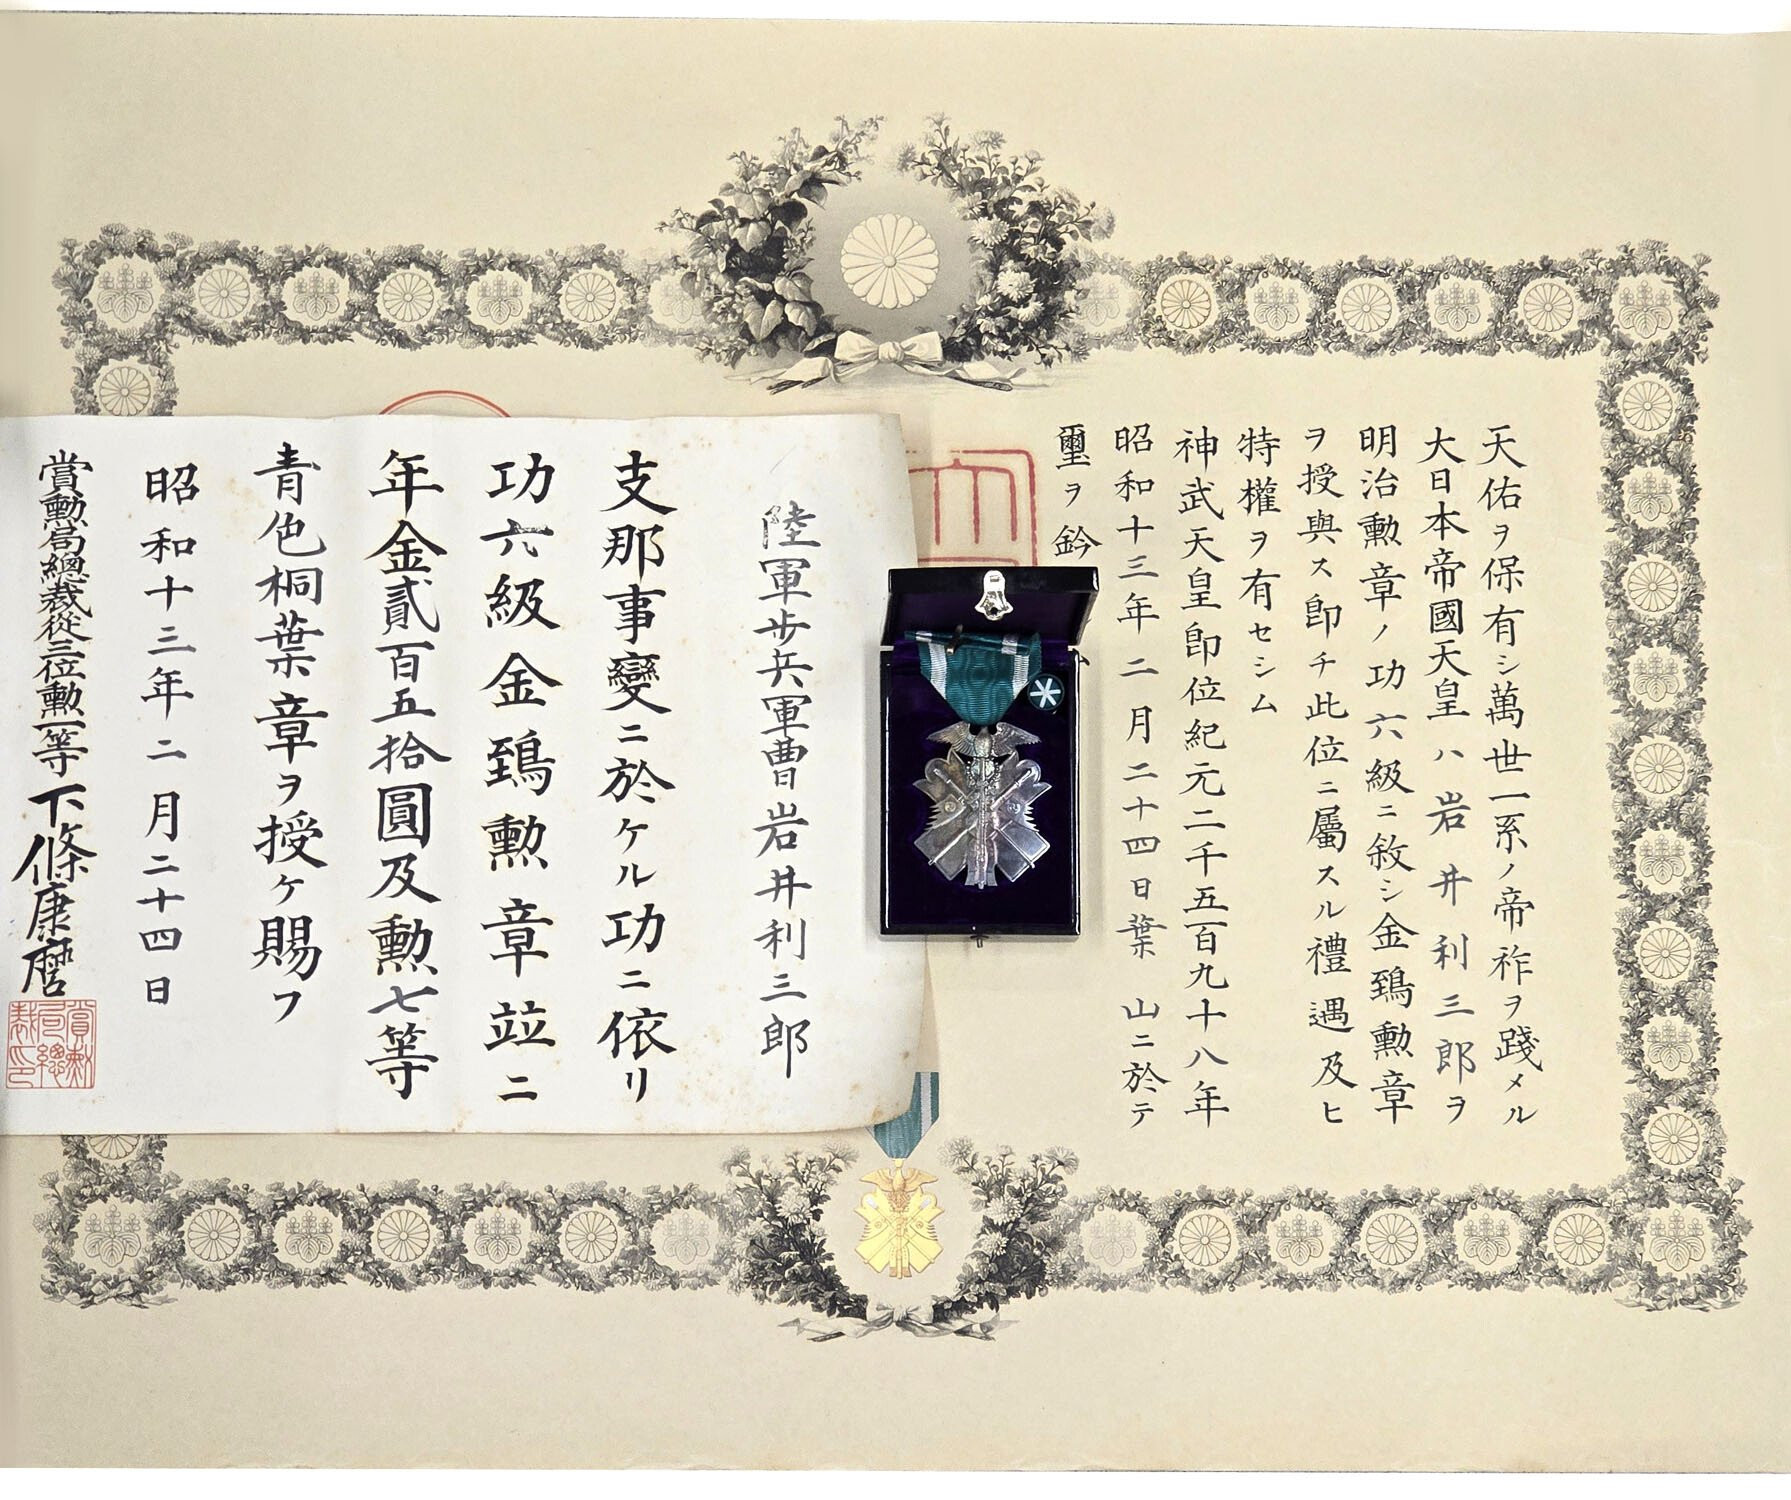 天佑ヲ保有シ萬世一系ノ帝祚ヲ踐メル
大日本帝國天皇ハ岩井利三郎ヲ
明治勲章ノ功六級ニ敘シ金鵄勲章
ヲ授與ス卽チ此位ニ屬スル禮遇及ヒ
特權ヲ有セシム
神武天皇卽位紀元二千五百九十八年
昭和十三年二月二十四日葉山ニ於テ
璽ヲ鈐
陸軍歩兵軍曹岩井利三郎
支那事變ニ於ケル功ニ依リ
功六級金鵄勲章竝ニ
年金貳百五拾圓及勲七等
青色桐葉章ヲ授ケ賜フ
昭和十三年二月二十四日
賞勲局總裁從三位勲一等下條康麿